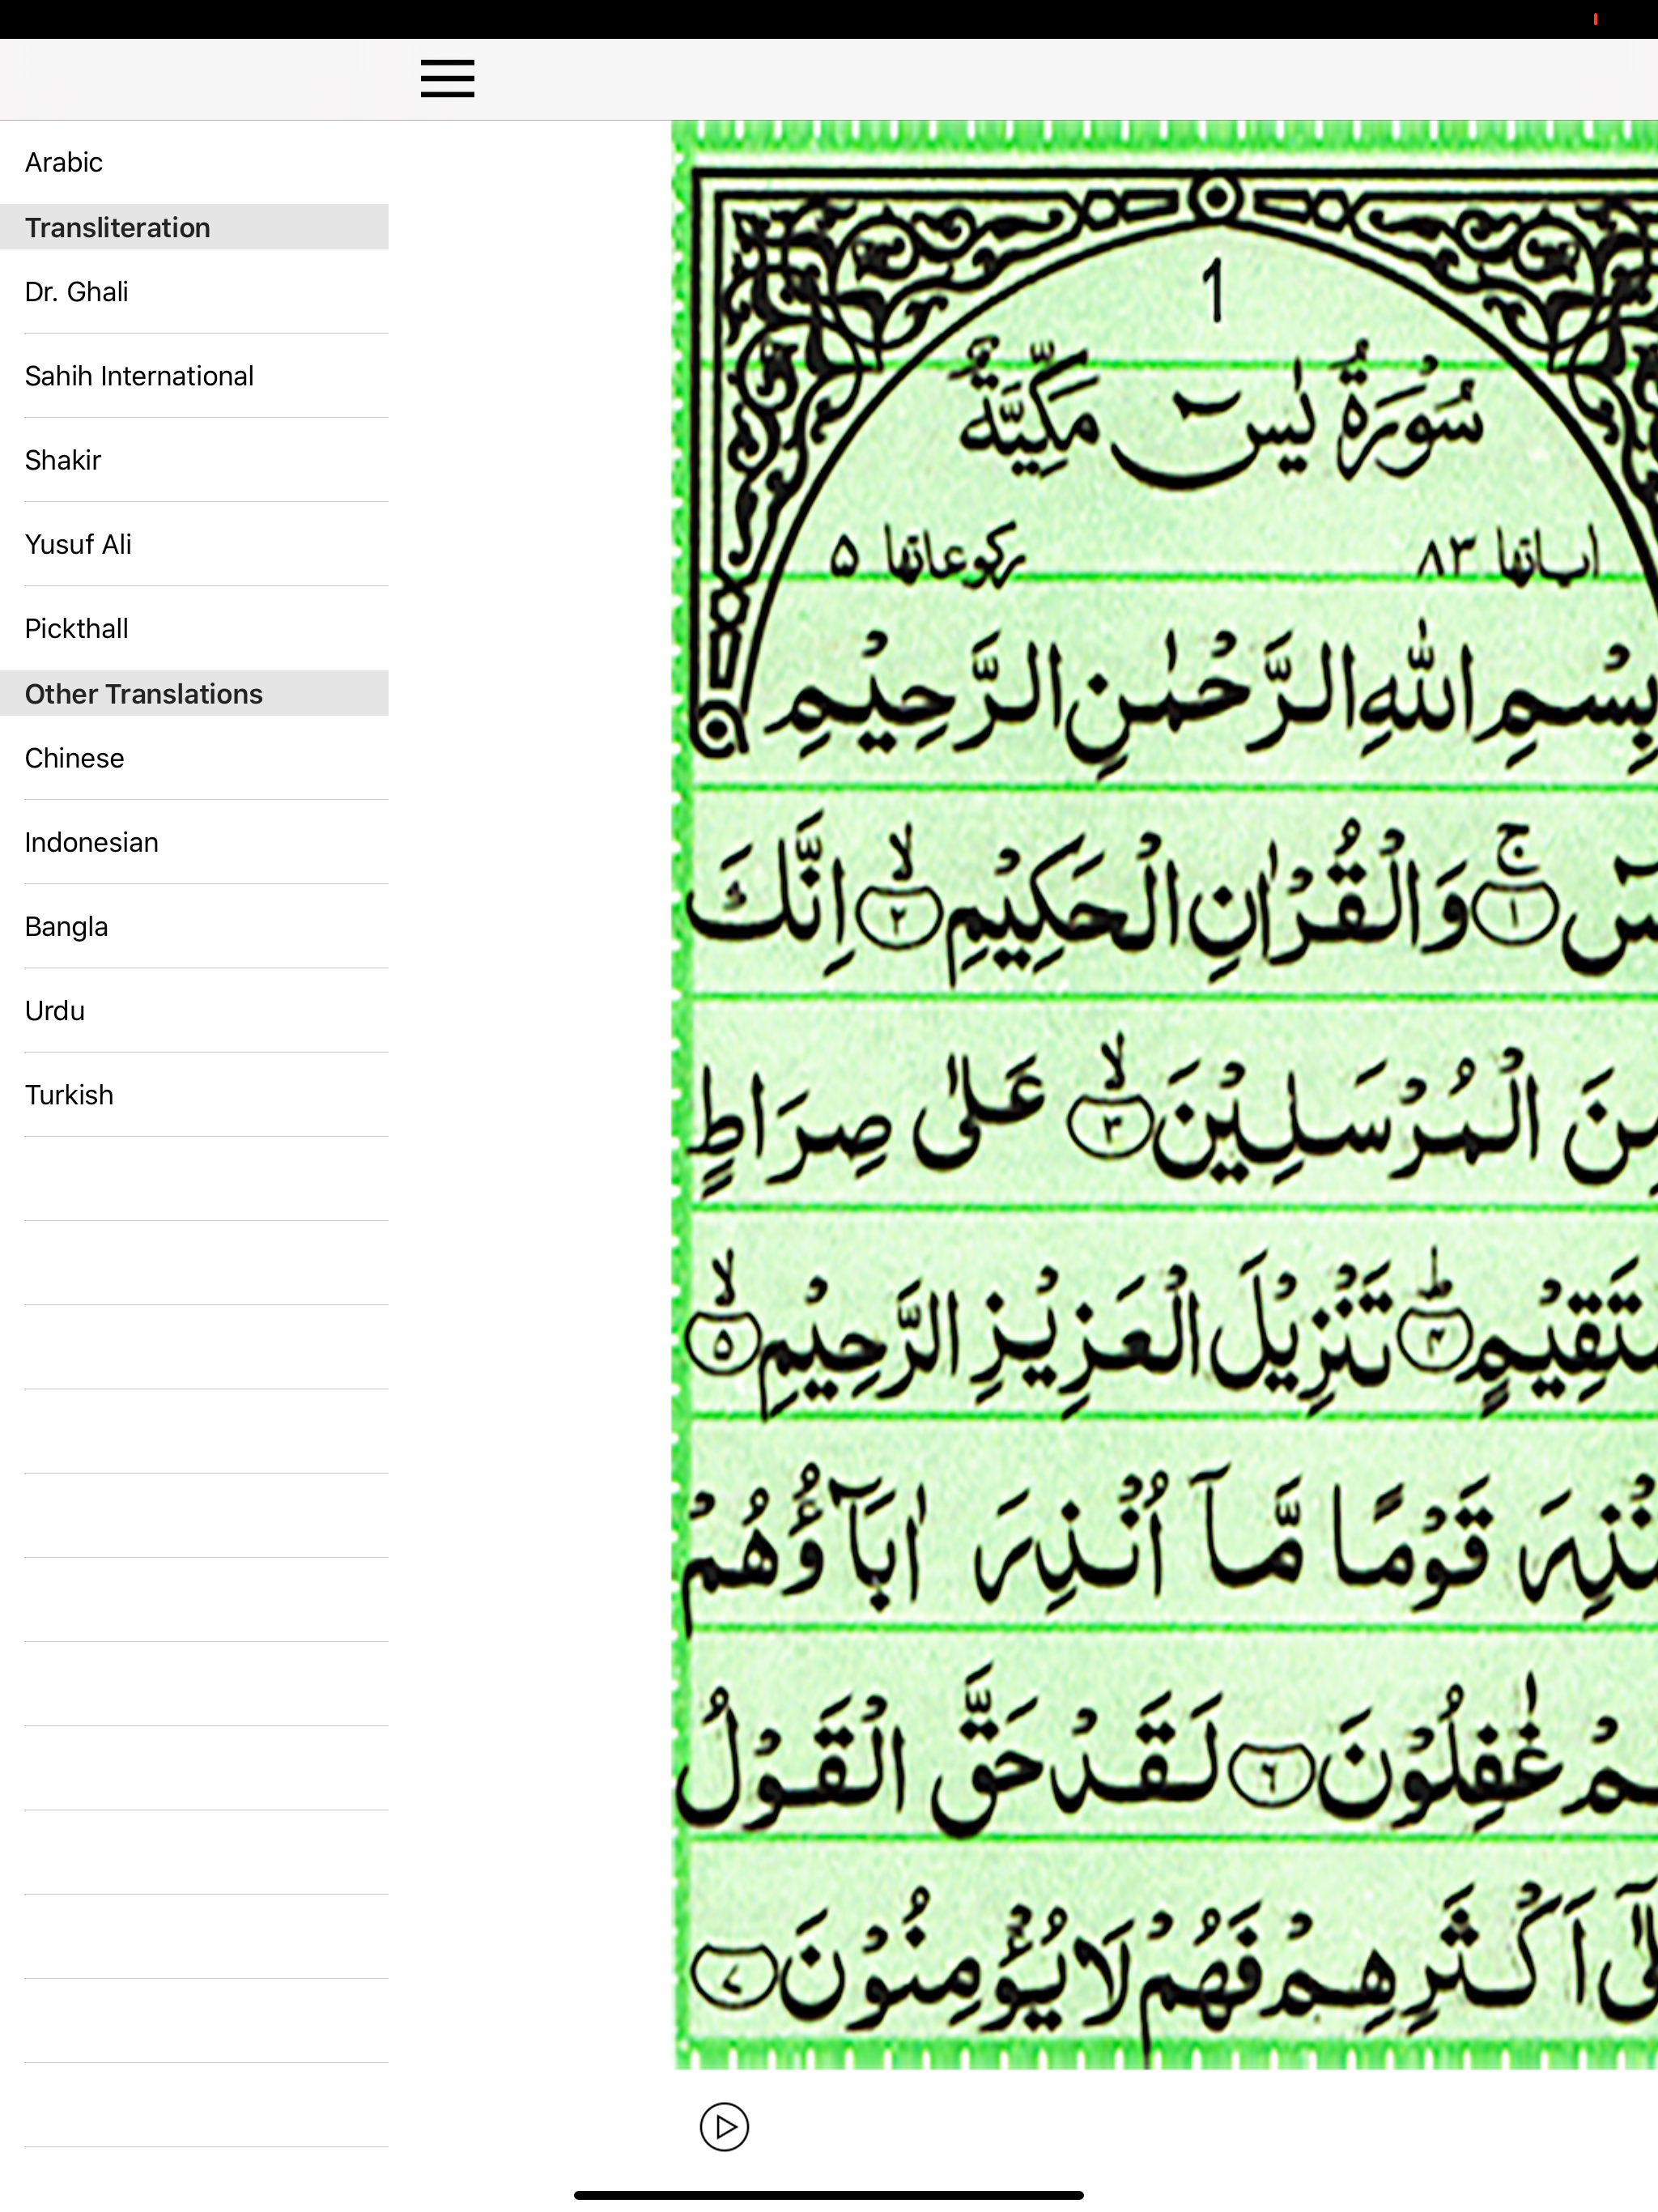 Arabic
Transliteration
Dr. Ghali
Sahih International
Shakir
Yusuf Ali
Pickthall
Other Translations
Chinese
Indonesian
Bangla
Urdu
Turkish
1
سُوْرَةُ يٰسٓ مَكِّيَّةٌ
اٰيـاتها ٨٣ ركوعاتها ۵
بِسْمِ اللّٰهِ الرَّحْمٰنِ الرَّحِيْمِ
ج ١ وَالْقُرْاٰنِ الْحَكِيْمِ لا ٢ اِنَّكَ
الْمُرْسَلِيْنَ لا ٣ عَلٰى صِرَاطٍ
ط ۴ تَنْزِيْلَ الْعَزِيْزِ الرَّحِيْمِ لا ۵
قَوْمًا مَّآ اُنْذِرَ اٰبَآؤُهُمْ
غٰفِلُوْنَ ٦ لَقَدْ حَقَّ الْقَوْلُ
اَكْثَرِهِمْ فَهُمْ لَا يُؤْمِنُوْنَ ٧